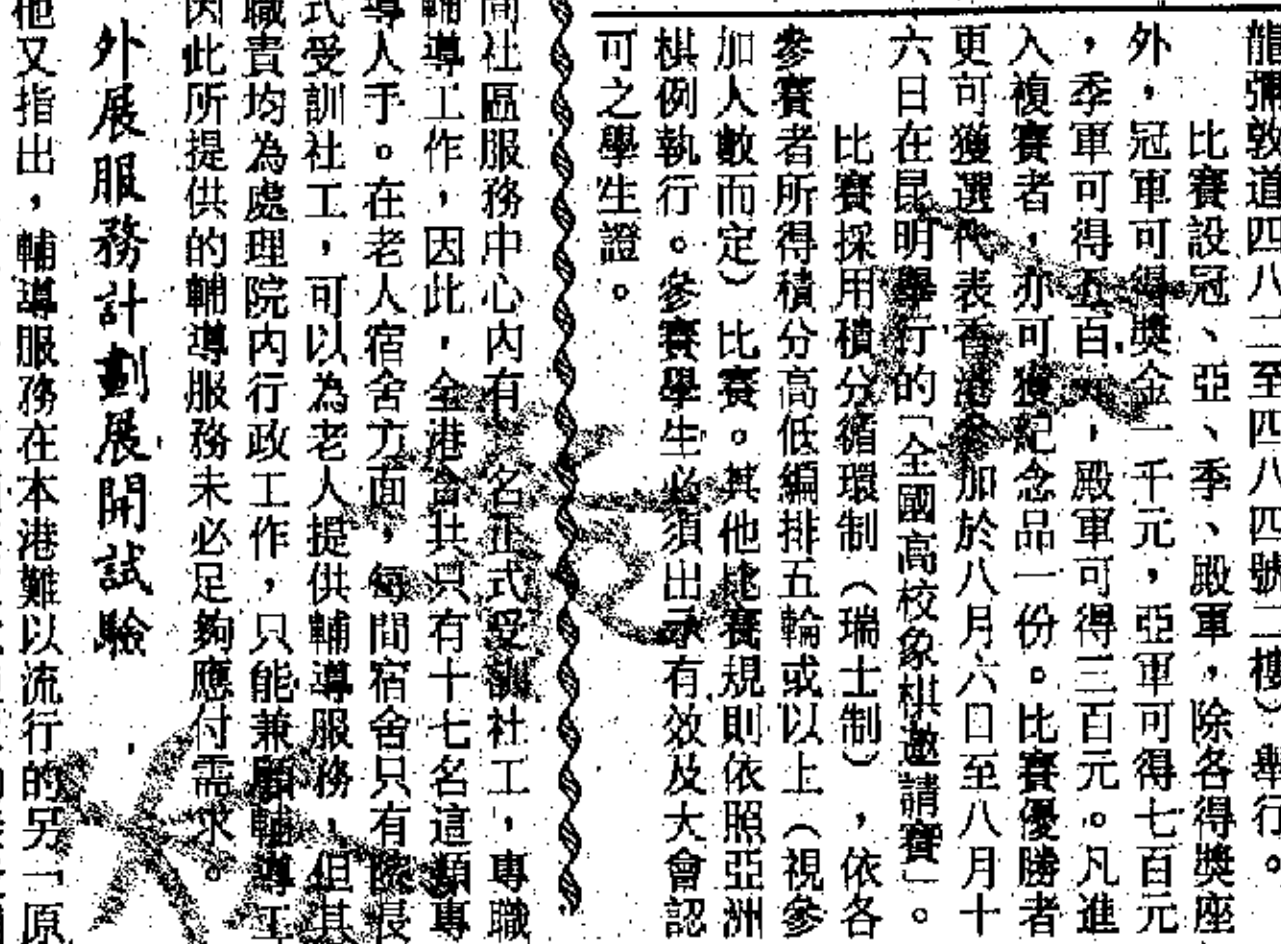 龍彌敦道四八二至四八四號二樓)舉行。
比賽設冠、亞、季、殿軍,除各得獎座
外,冠軍可得獎金一千元,亞軍可得七百元
,季軍可得五百元,殿軍可得三百元。凡進
入複賽者,亦可獲紀念品一份。比賽優勝者
更可獲選代表香港參加於八月六日至八月十
六日在昆明舉行的「全國高校象棋邀請賽」。
比賽採用積分循環制(瑞士制),依各
參賽者所得積分高低編排五輪或以上(視參
加人數而定)比賽。其他比賽規則依照亞洲
棋例執行。參賽學生必須出示有效及大會認
可之學生證。
間社區服務中心內有一名正式受訓社工,專職
輔導工作,因此,全港合共只有十七名這類專
導人手。在老人宿舍方面,每間宿舍只有院長
式受訓社工,可以為老人提供輔導服務,但其
職責均為處理院內行政工作,只能兼顧輔導工
因此所提供的輔導服務未必足夠應付需求。
外展服務計劃展開試驗
他又指出,輔導服務在本港難以流行的另一原